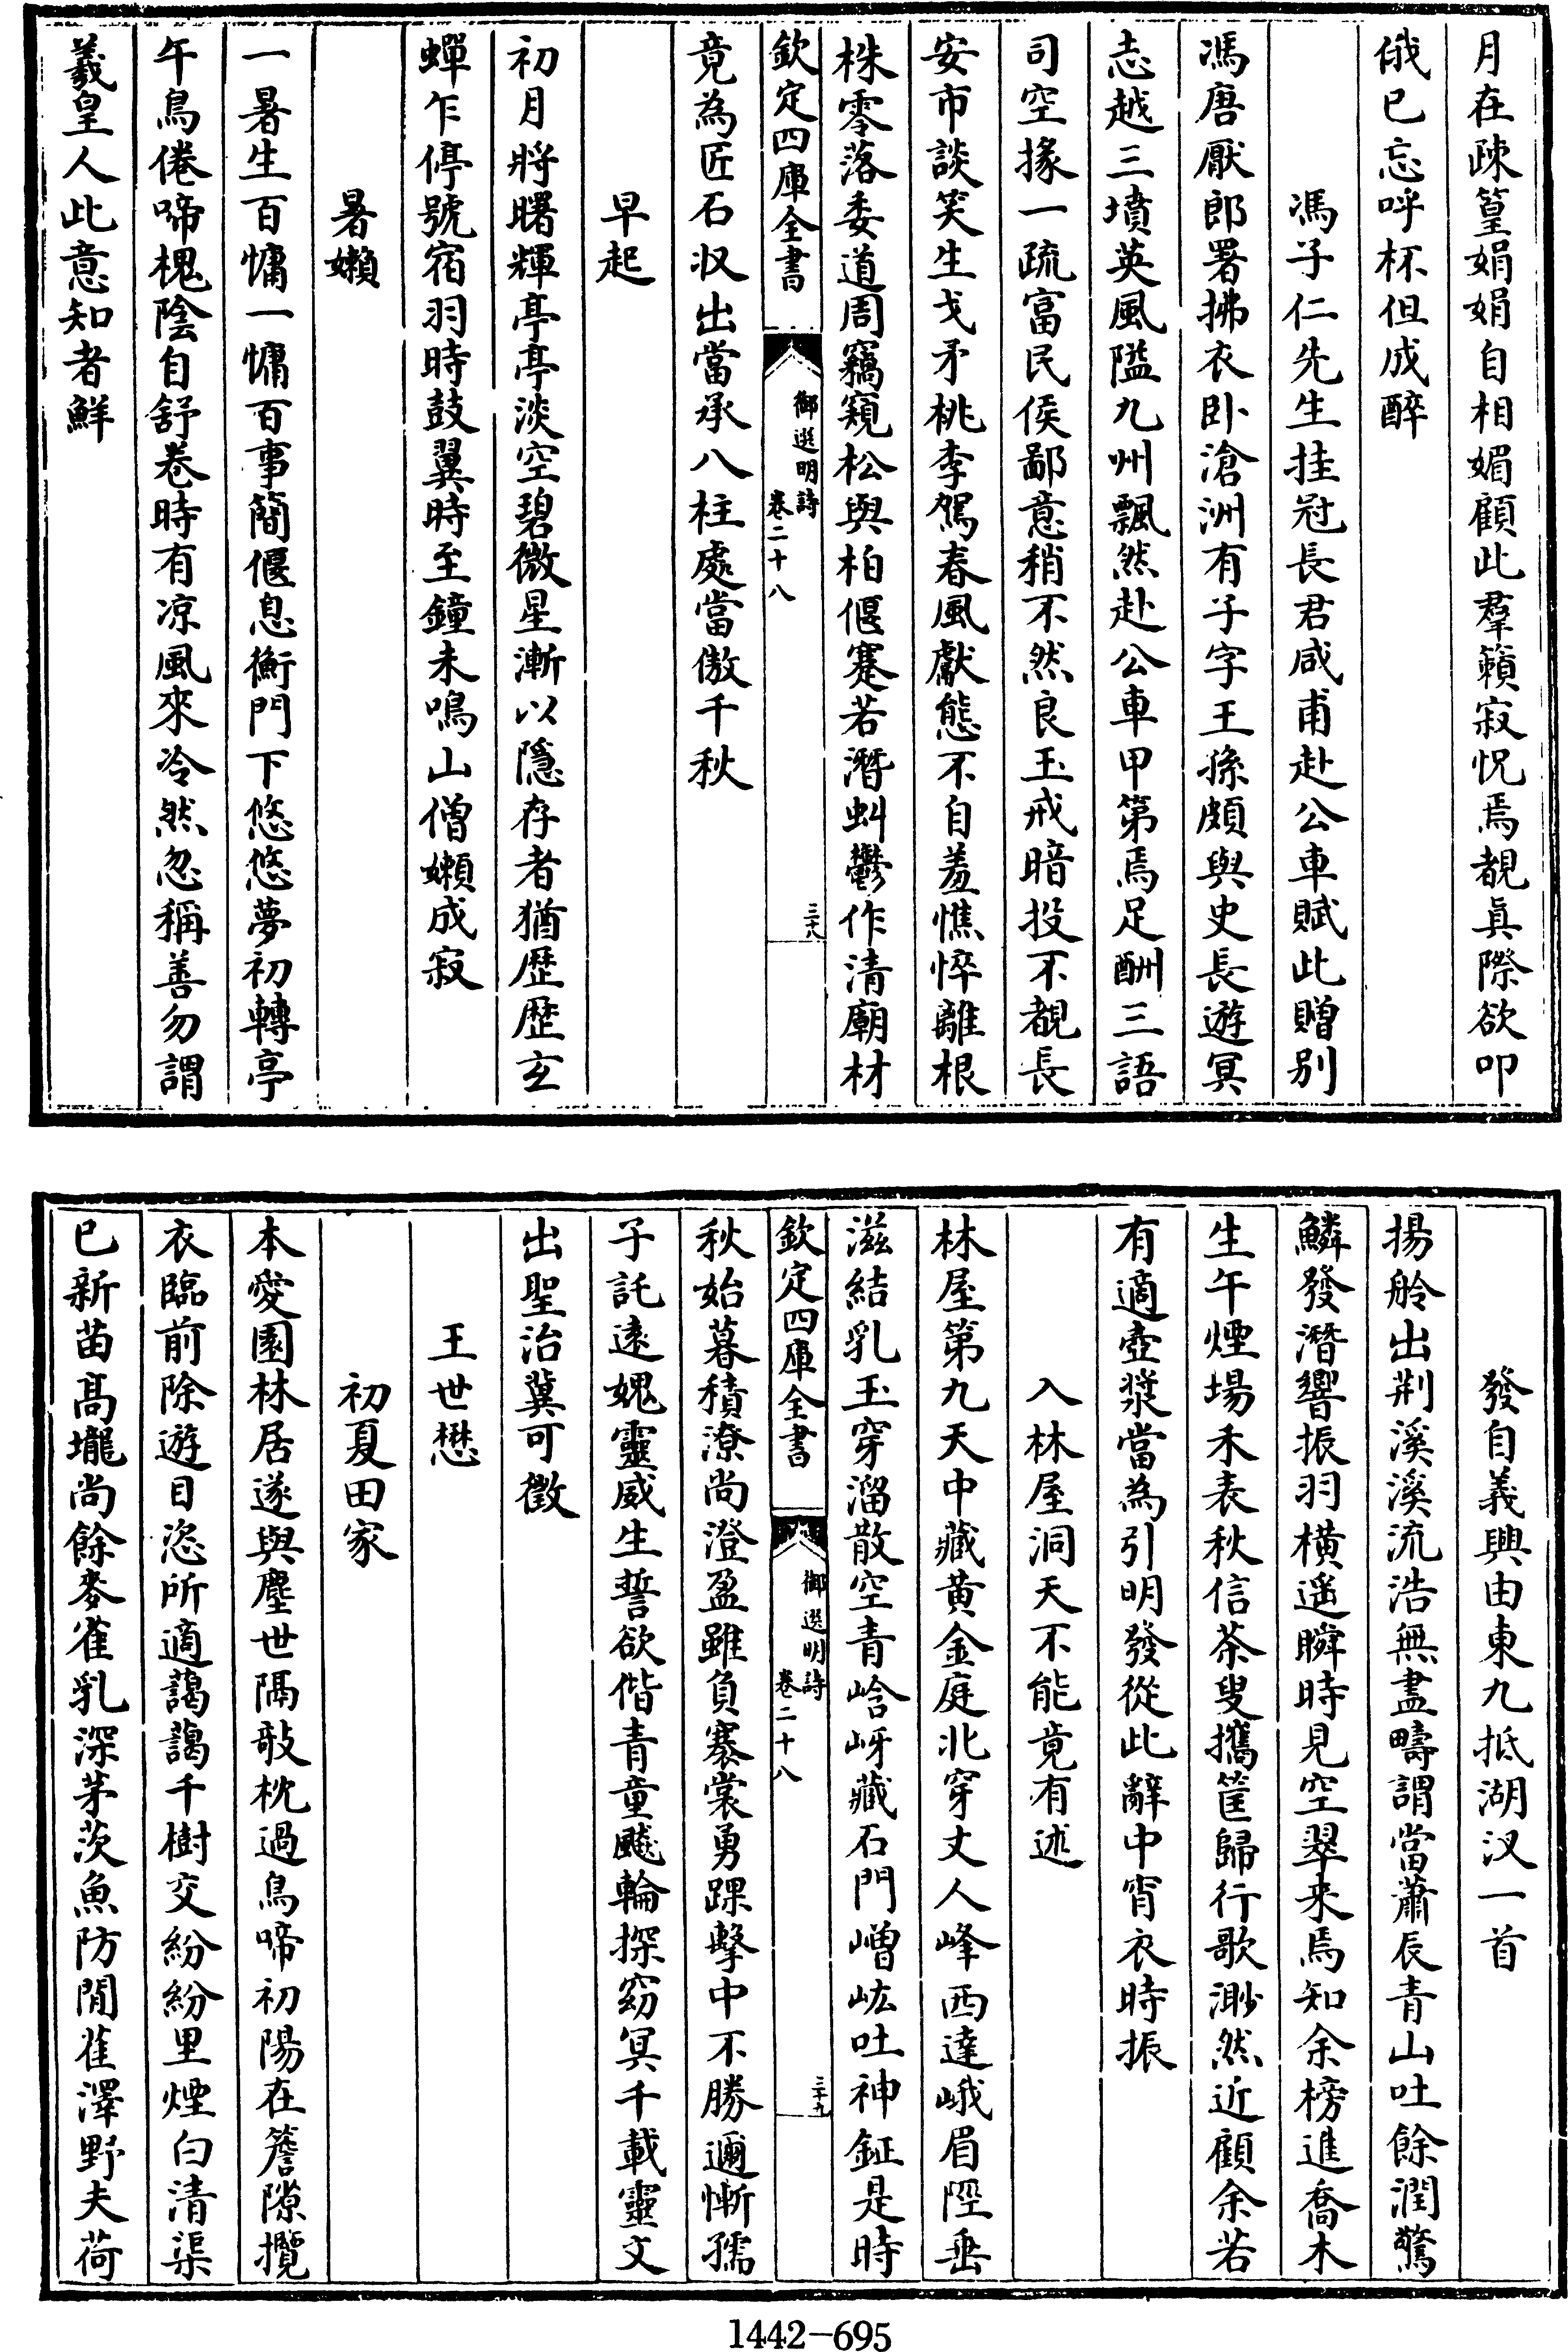 月在疎篁娟娟自相媚顧此羣籟寂怳焉覩真際欲叩
俄已忘呼杯但成醉
馮子仁先生挂冠長君咸甫赴公車賦此贈别
馮唐厭郎署拂衣卧滄洲有子字王孫頗與史長遊冥
志越三墳英風隘九州飄然赴公車甲第焉足酬三語
司空掾一疏富民侯鄙意稍不然良玉戒暗投不覩長
安市談笑生戈矛桃李駕春風獻態不自羞憔悴離根
株零落委道周竊窺松與柏偃蹇若潛虯鬱作清廟材
欽定四庫全書
御選明詩
卷二十八
三十八
竟為匠石収出當承八柱處當傲千秋
早起
初月將曙輝亭亭淡空碧微星漸以隱存者猶歴歴玄
蟬乍停號宿羽時鼓翼時至鐘未鳴山僧嬾成寂
暑嬾
一暑生百慵一慵百事簡偃息衡門下悠悠夢初轉亭
午鳥倦啼槐陰自舒卷時有凉風來泠然忽稱善勿謂
羲皇人此意知者鮮
發自義興由東九抵湖汊一首
揚舲出荆溪溪流浩無盡疇謂當蕭辰青山吐餘潤驚
鱗發潛響振羽橫遥瞬時見空翠来焉知余榜進喬木
生午煙場禾表秋信茶叟攜筐歸行歌渺然近顧余若
有適壺漿當為引明發從此辭中宵衣時振
入林屋洞天不能竟有述
林屋第九天中藏黄金庭北穿丈人峰西達峨眉陘垂
滋結乳玉穿溜散空青峆岈藏石門嶒峵吐神鉦是時
欽定四庫全書
御選明詩
卷二十八
三十九
秋始暮積潦尚澄盈雖負褰裳勇踝擊中不勝邇慚孺
子託遠媿靈威生誓欲偕青童飈輪探窈冥千載靈文
出聖治冀可徵
王世懋
初夏田家
本愛園林居遂與塵世隔敧枕過鳥啼初陽在簷隙攬
衣臨前除遊目恣所適藹藹千樹交紛紛里煙白清渠
已新苗髙壠尚餘麥雀乳深茅茨魚防閒萑澤野夫荷
1442-695